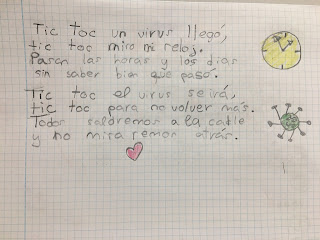 Tic toc un virus llegó,
tic toc miro mi reloj.
Pasan las horas y los dias
sin saber bien que pasó.
Tic toc el virus se irá,
tic toc para no volver más.
Todos saldremos a la calle
y no miraremos atrás.